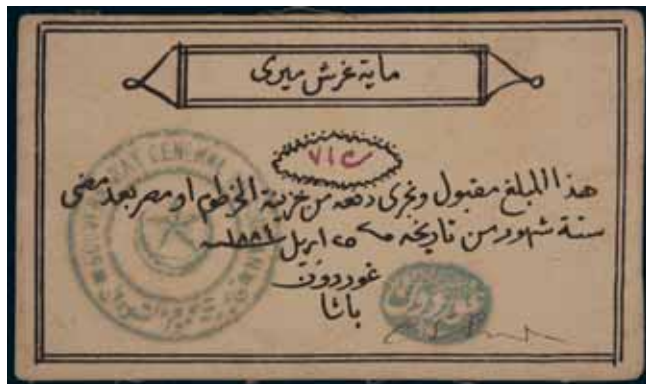 ماية غرش ميرى
هذا المبلغ مقبول ونجرى دفعه من خزينة الخرطوم او مصر بعد مضى
ستة شهور من تاريخه ٢٥ ابريل ١٨٨٤
غوردون
باشا
GENERAL
غوردون